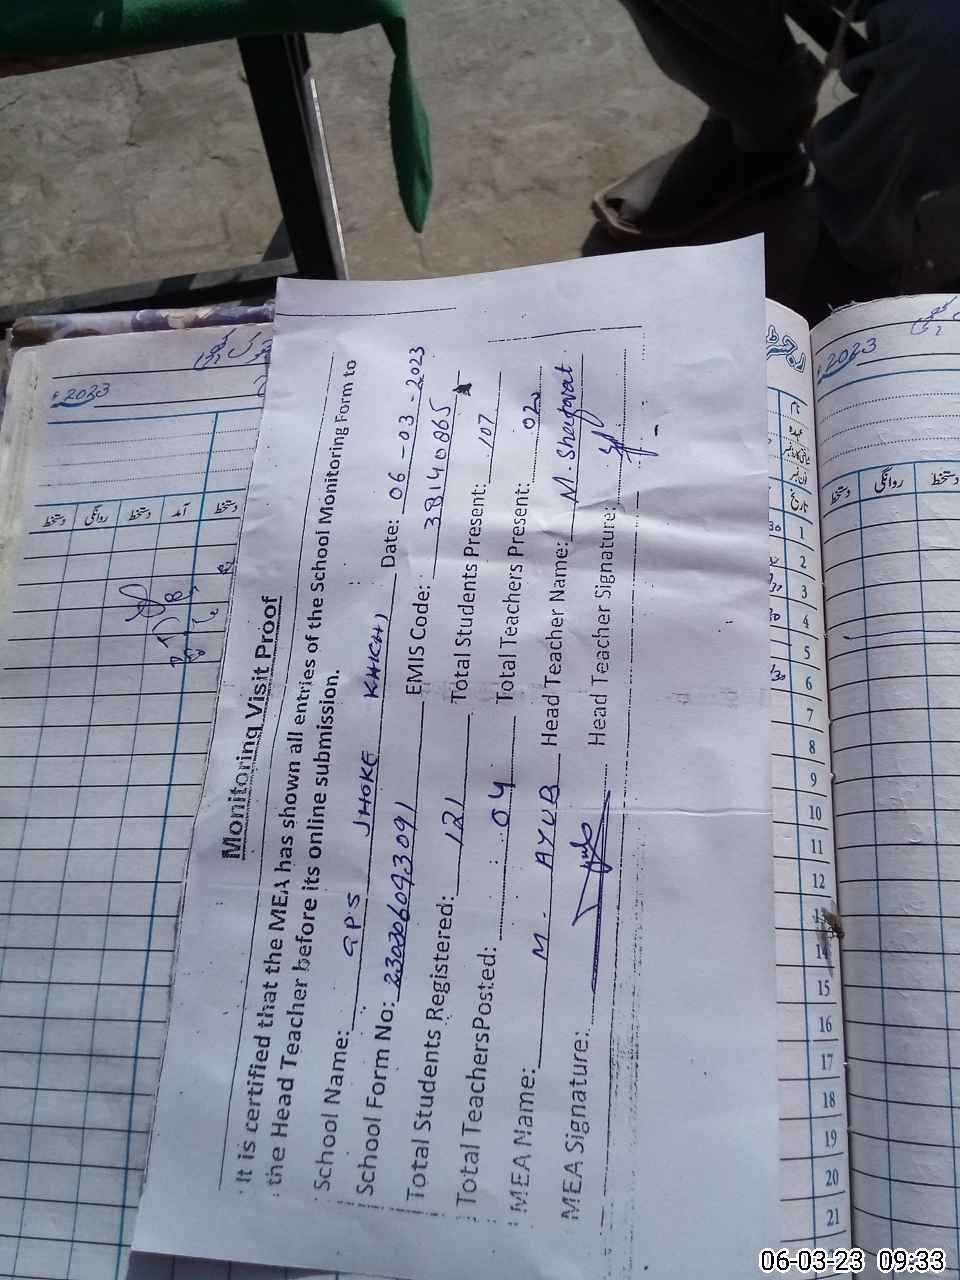 Monitoring Visit Proof
It is certified that the MEA has shown all entries of the School Monitoring Form to
the Head Teacher before its online submission.
School Name: GPS JHOKE KHICHI Date: 06-03-2023
School Form No: EMIS Code: 38140065
Total Students Registered: 121 Total Students Present: 107
Total Teachers Posted: 04 Total Teachers Present: 02
MEA Name: M. AYUB Head Teacher Name: M. Shafaqat
MEA Signature: Head Teacher Signature:
2023
دستخط روانگی دستخط آمد دستخط
2023
دستخط روانگی دستخط
تاریخ
1
2
3
4
5
6
7
8
9
10
11
12
13
14
15
16
17
18
19
20
21
06-03-23 09:33